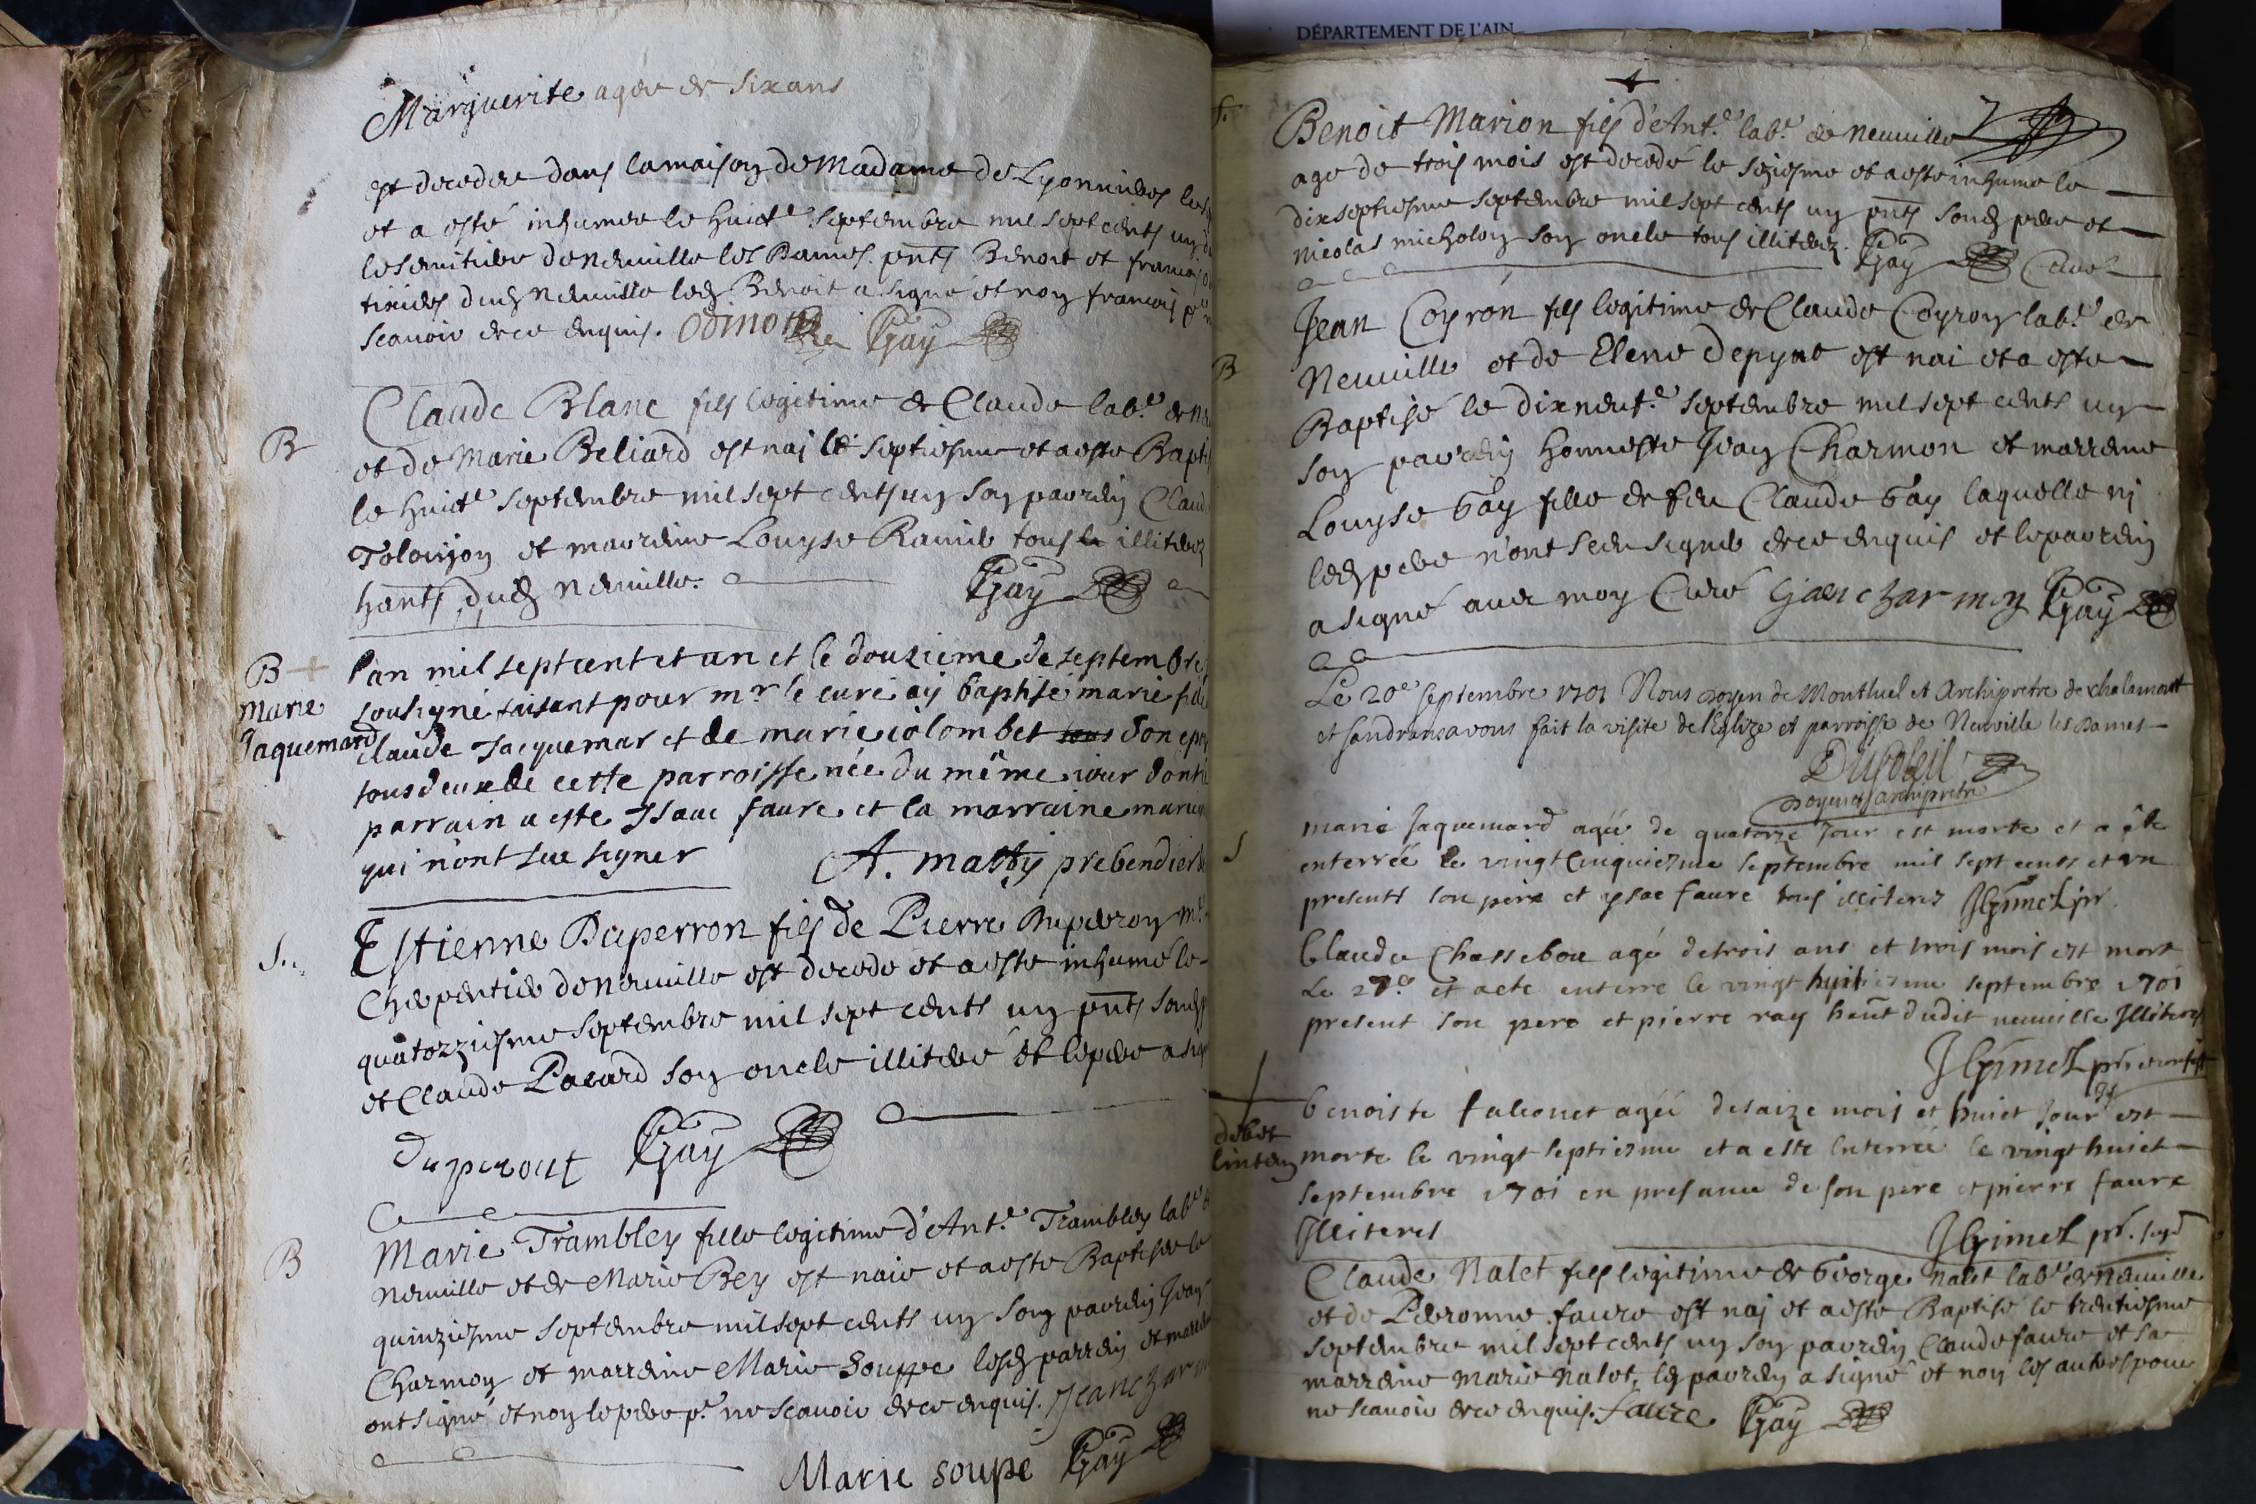 Marguerite agee de six ans
est decedee dans la maison de Madame de Lyonnieres le
et a esté inhumee le huict.e septembre mil sept cents un
le semitiere de neuville les Dames. pnts Benoit et francois
dud neuville led Benoit a signé et non francois pr
scavoir de ce enquis. Gay
B
Claude Blanc fils legitime de Claude lab.r de
et de Marie Beliard est nai le septiesme et a esté Bapti
le huict.e septembre mil sept cents un son parrein Claud
Tolonjon et marreine Louyse Ramie tous illiterez
hants dud neuville. Gay
B
Marie
Jaquemard
l'an mil sept cent et un et le douzieme de septembre
sousigné faisant pour mr le curé aÿ baptisé marie fille
claude Jacquemar et de marie colombet tous son epou
tous deux de cette parroisse née du même iour dont
parrain a esté Isaac faure et la marraine marie
qui n'ont sceu signer A. matty prebendier
S.
Estienne Duperron fils de Pierre Duperron m.e
Cherpentier de neuville est decedé et a esté inhumé le
quatorziesme septembre mil sept cents un pnts sond
et Claude Pacard son oncle illiteré et le pere a sig
duperout Gay
B
Marie Trambley fille legitime d'Ant.e Trambley lab.r
neuville et de Marie Bey est naie et a esté Baptisee le
quinziesme septembre mil sept cents un son parrein Jean
Charmon et marreine Marie Souppe lesd parrein et marrei
ont signé et non le pere p.r ne scavoir de ce enquis. Jean charm
Marie soupe Gay
DÉPARTEMENT DE L'AIN
S.
Benoit Marion fils d'Ant.e lab.r de neuville
age de trois mois est decedé le seziesme et a esté inhumé le
dixseptiesme septembre mil sept cents un pnts sond pere et
nicolas micholon son oncle tous illiterez. Gay Curé
B
Jean Coyron fils legitime de Claude Coyron lab.r de
Neuville et de Elene Depyne est nai et a esté
Baptisé le dixneuf.e septembre mil sept cents un
son parrein honneste Jean Charmon et marreine
Louyse Gay fille de feu Claude Gay laquelle ni
led pere n'ont sceu signer de ce enquis et le parrein
a signé avec moy Curé Jean charmon Gay
Le 20e septembre 1701 Nous doyen de Montluel et Archipretre de chalamont
et sandrans avons fait la visite de l'Eglize et parroisse de Neuville les Dames
Dusoleil
doyen et archipretre
S
marie Jaquemard agée de quatorze Jour est morte et a ête
enterrée le vingt cinquiesme septembre mil sept cents et un
presents son pere et ysac faure tous illiteres
Claude Chassebou agé de trois ans et trois mois est mort
Le 27.e et a ete enterre le vingt huitiesme septembre 1701
present son pere et pierre ray hant dudit neuville Illiteres
benoiste falconet agéé de saize mois et huict Jour est
morte le vingt septiesme et a esté Enterréé le vingt huict
septembre 1701 en presance de son pere et pierre faure
Illiteres
Claude Nalet fils legitime de George nalet lab.r de neuville
et de Peronne faure est nai et a esté Baptisé le trentiesme
septembre mil sept cents un son parrein Claude faure et sa
marreine marie nalet, led parrein a signé et non les autres pour
ne scavoir de ce enquis. faure Gay